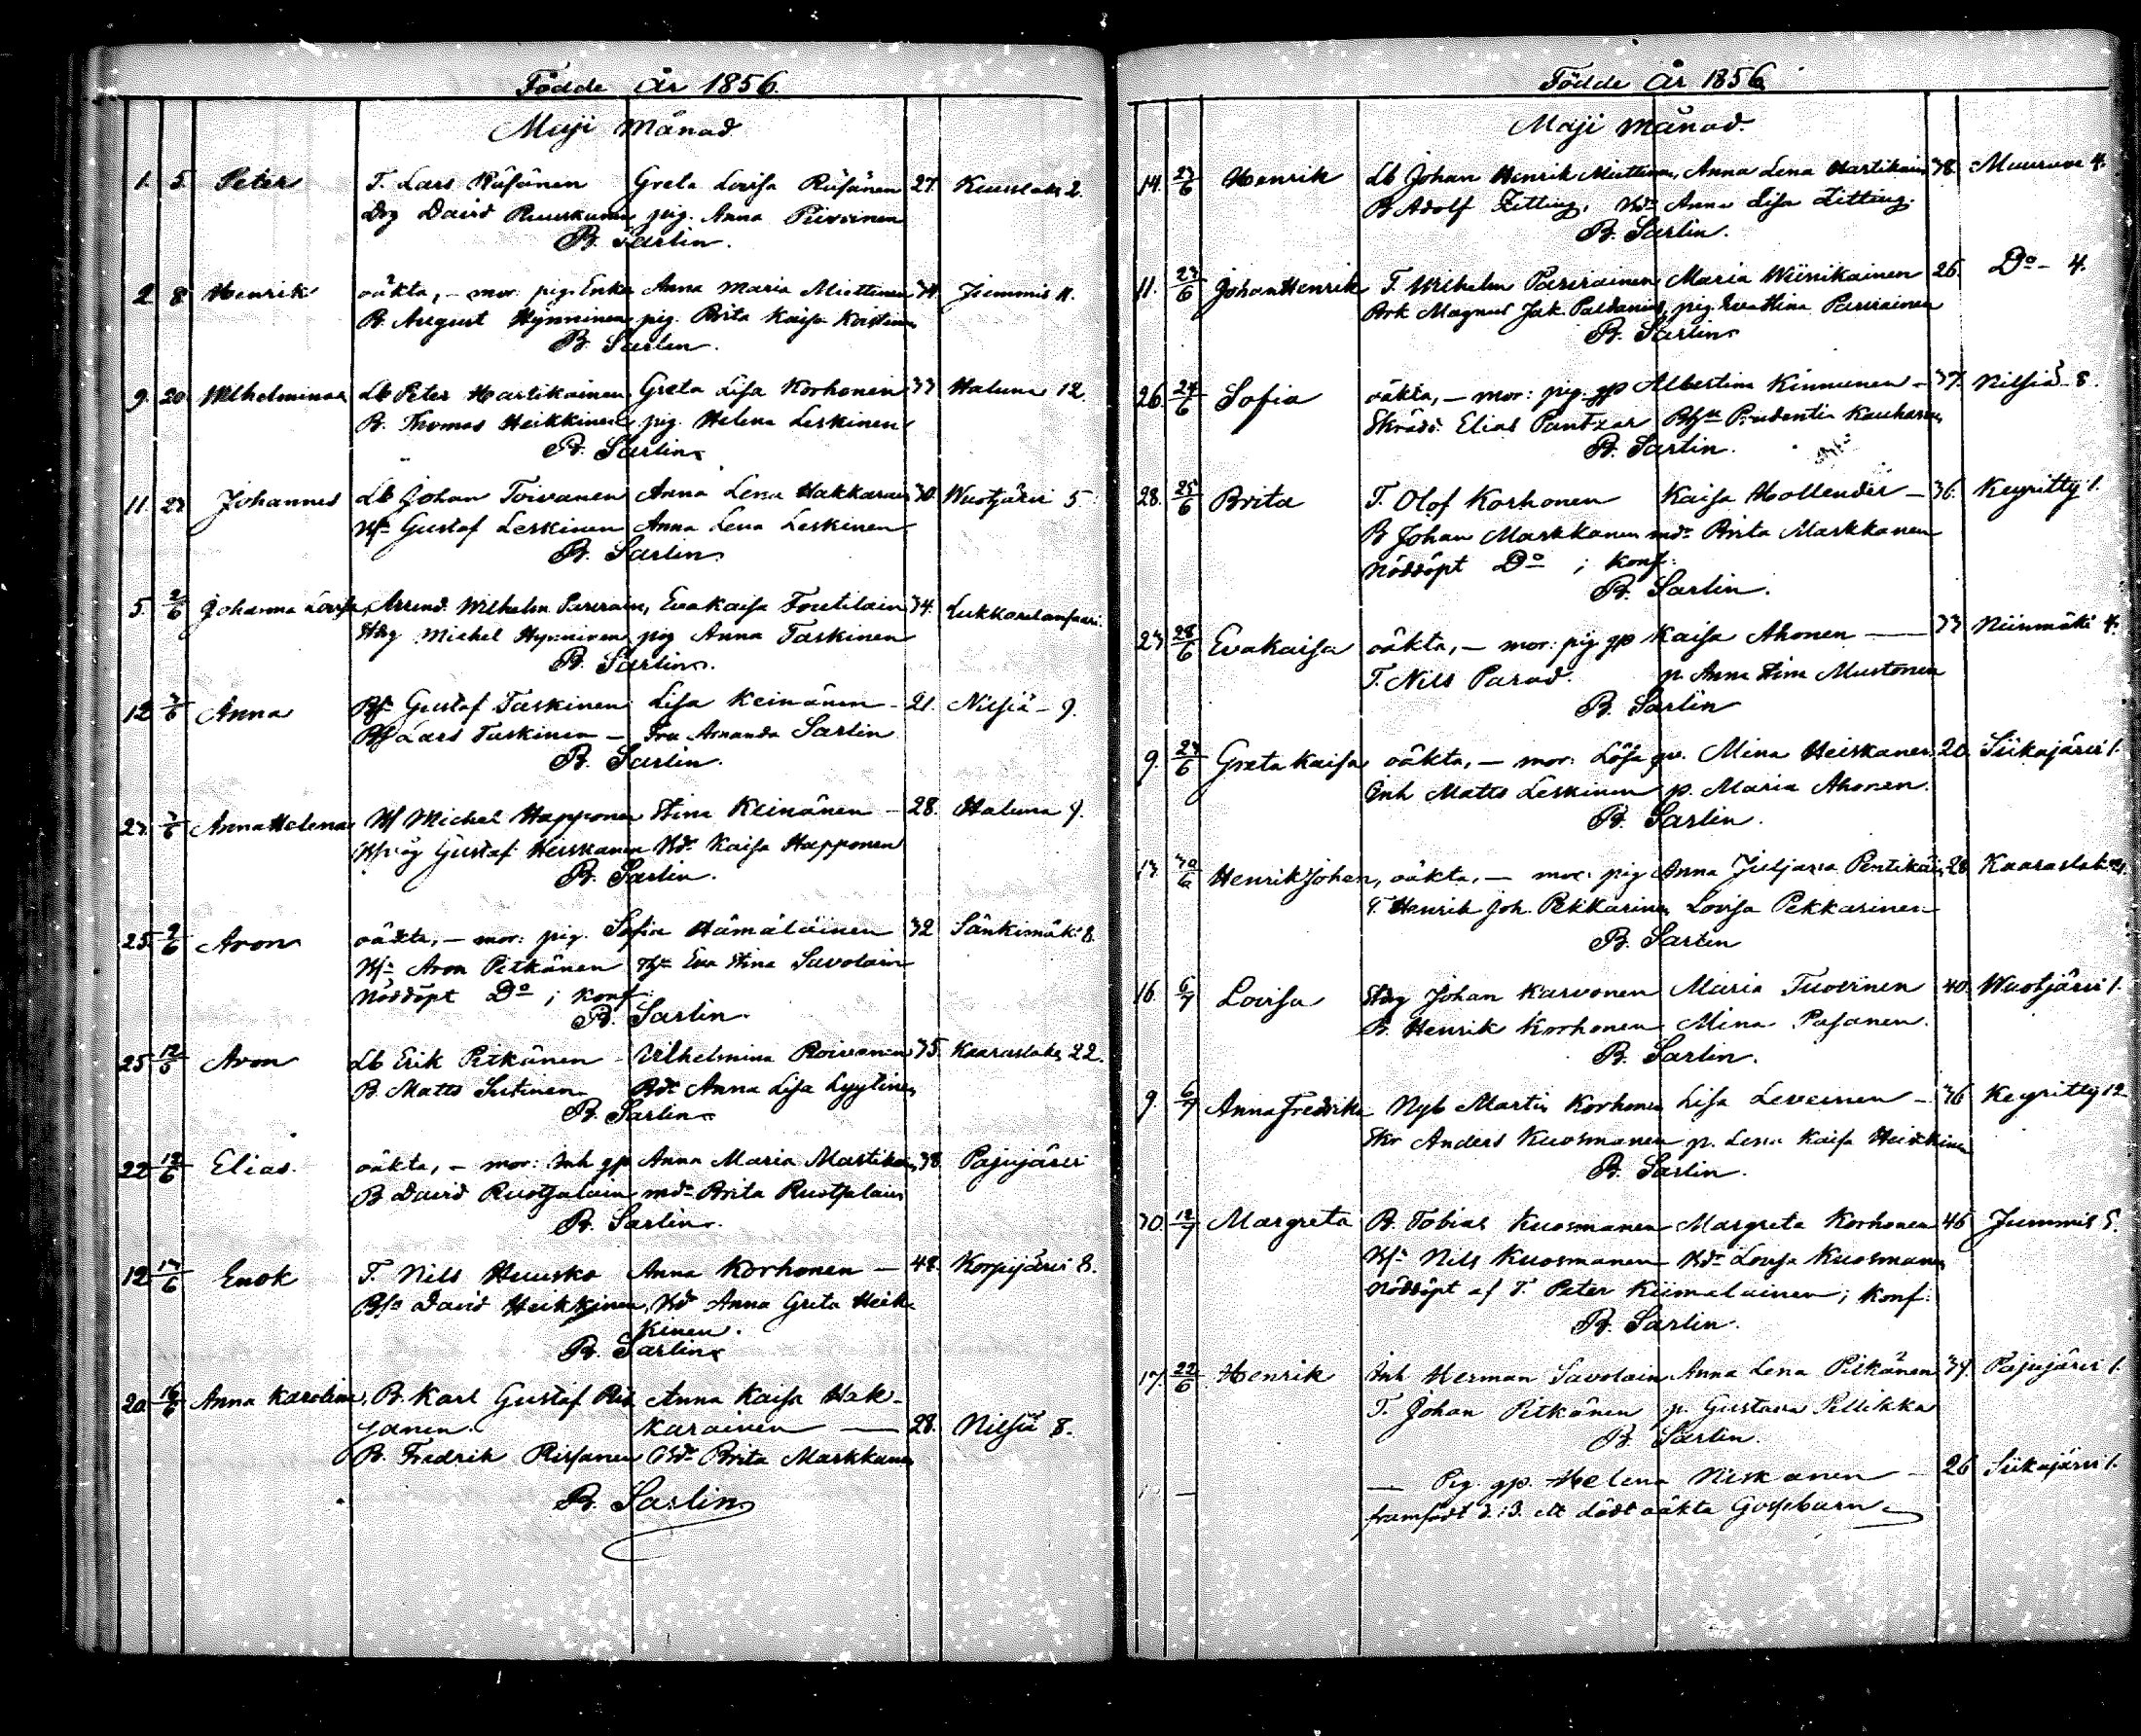 Födde År 1856.
Maji Månad.
1. 5. Peter T. Lars Räsänen Greta Lovisa Räsänen 27. Kuuslaks 2.
Drg David Ruuskanen pig. Anna Piironen
B. Sarlin.
2 8 Henrik oäkta, – mor: pig. Enka Anna Maria Miettinen 34. Jummis 4.
B. August Hynninen pig. Brita Kaisa
B. Sarlin.
9. 20. Wilhelmina Lb Peter Hartikainen Greta Lisa Korhonen 33 Haluna 12.
B. Thomas Heikkinen pig. Helena Leskinen
B. Sarlin
11. 23 Johannes Lb Johan Toivanen Anna Lena Hakkarain 30. Wuotjärvi 5.
Gustaf Leskinen Anna Lena Leskinen
B. Sarlin
5. 2/6 Johanna Lovisa, Arrend. Wilhelm Parviain, Eva Kaisa Toutilain 34.
Michel Hynninen pig Anna Taskinen
B. Sarlin.
12 3/6 Anna Gustaf Taskinen Lisa Keinänen – 21. Nilsiä – 9.
Lars Taskinen – Fru Amanda Sarlin
B. Sarlin.
23. 3/6 Anna Helena Michel Happonen Stina Keinänen – 28. Haluna 4.
Gustaf Heiskanen Hd. Kaisa Happonen
B. Sarlin.
25. 9/6 Aron oäkta, – mor: pig. Sofia Hämäläinen 32 Sänkimäki 8.
Aron Pitkänen Eva Stina Savolain
Nöddöpt Do ; konf:
B. Sarlin.
25 12/5 Aron Lb Erik Pitkänen – Wilhelmina Roivanen 35. Kaaraslaks 22.
B. Matts Sutinen Anna Lisa Lyytinen
B. Sarlin
22 12/6 Elias. oäkta, – mor: Inh gp Anna Maria Martikain, 38. Pajujärvi
B. David Ruotsalain md: Brita Ruotsalain
B. Sarlin.
12 13/6 Enok T. Nils Huusko Anna Korhonen – 48. Korpijärvi 8.
David Heikkinen, Hd Anna Greta Heik-
kinen.
B. Sarlin
20. 16/6 Anna Karolina, B. Karl Gustaf Ris Anna Kaisa Hak-
sanen. karainen — 28. Nilsiä 8.
B. Fredrik Rissanen Hd: Brita Markkanen
B. Sarlin
Födde År 1856
Maji månad.
14. 23/6 Henrik Lb Johan Henrik Miettinen, Anna Lena Hartikain 38. Muuruve 4.
B Adolf Zitting, Hd: Anna Lisa Zitting.
B. Sarlin.
11. 23/6 Johan Henrik T. Wilhelm Parviainen Maria Wiinikainen 26. Do – 4.
Brk Magnus Jak. Paldanius, pig. Eva Stina Parviainen
B. Sarlin
26. 24/6 Sofia oäkta, – mor: pig. gp Albertina Kinnunen – 37. Nilsiä 8.
Skrädd. Elias Pantzar Prudentia Kauhanen
B. Sarlin.
28. 25/6 Brita T. Olof Korhonen Kaisa Hollender – 36. Keyritty 1.
B Johan Markkanen md: Brita Markkanen
Nöddöpt Do ; konf:
B. Sarlin.
23. 28/6 Eva Kaisa oäkta, – mor: pig gp Kaisa Ahonen — 33 Niinmäki 4.
T. Nils Parad. p. Anna Stina Mustonen
B. Sarlin
9. 29/6 Greta Kaisa oäkta, – mor: Lösa qv. Mina Heiskanen 20. Siikajärvi 1.
Inh Matts Leskinen p. Maria Ahonen.
B. Sarlin.
13. 30/6 Henrik Johan, oäkta, – mor: pig Anna Juljana Pentikäin, 28 Kaaraslaks
T. Henrik Joh. Pekkarinen Lovisa Pekkarinen
B. Sarlin
16. 6/7 Lovisa Johan Karvonen Maria Tuovinen 40. Wuotjärvi 1.
B. Henrik Korhonen Mina Pasanen.
B. Sarlin.
9. 6/7 Anna Fredrika Nyb Martin Korhonen Lisa Leveinen – 36 Keyritty 12
Skr Anders Kuosmanen p. Lena Kaisa Heikkinen
B. Sarlin.
30. 12/7 Margreta B. Tobias Kuosmanen Margreta Korhonen 46 Jummis 5.
Nils Kuosmanen Hd: Lovisa Kuosmanen
Nöddöpt af T. Peter Kiimalainen; konf:
B. Sarlin.
17. 22/6 Henrik Inh Herman Savolain Anna Lena Pitkänen 34. Pajujärvi 1.
T. Johan Pitkänen p. Gustava Pellikka
B. Sarlin.
— — Pig. gp. Helena Niskanen – 26 Siikajärvi 1.
framfödt d. 13. ett dödt oäkta Gossebarn